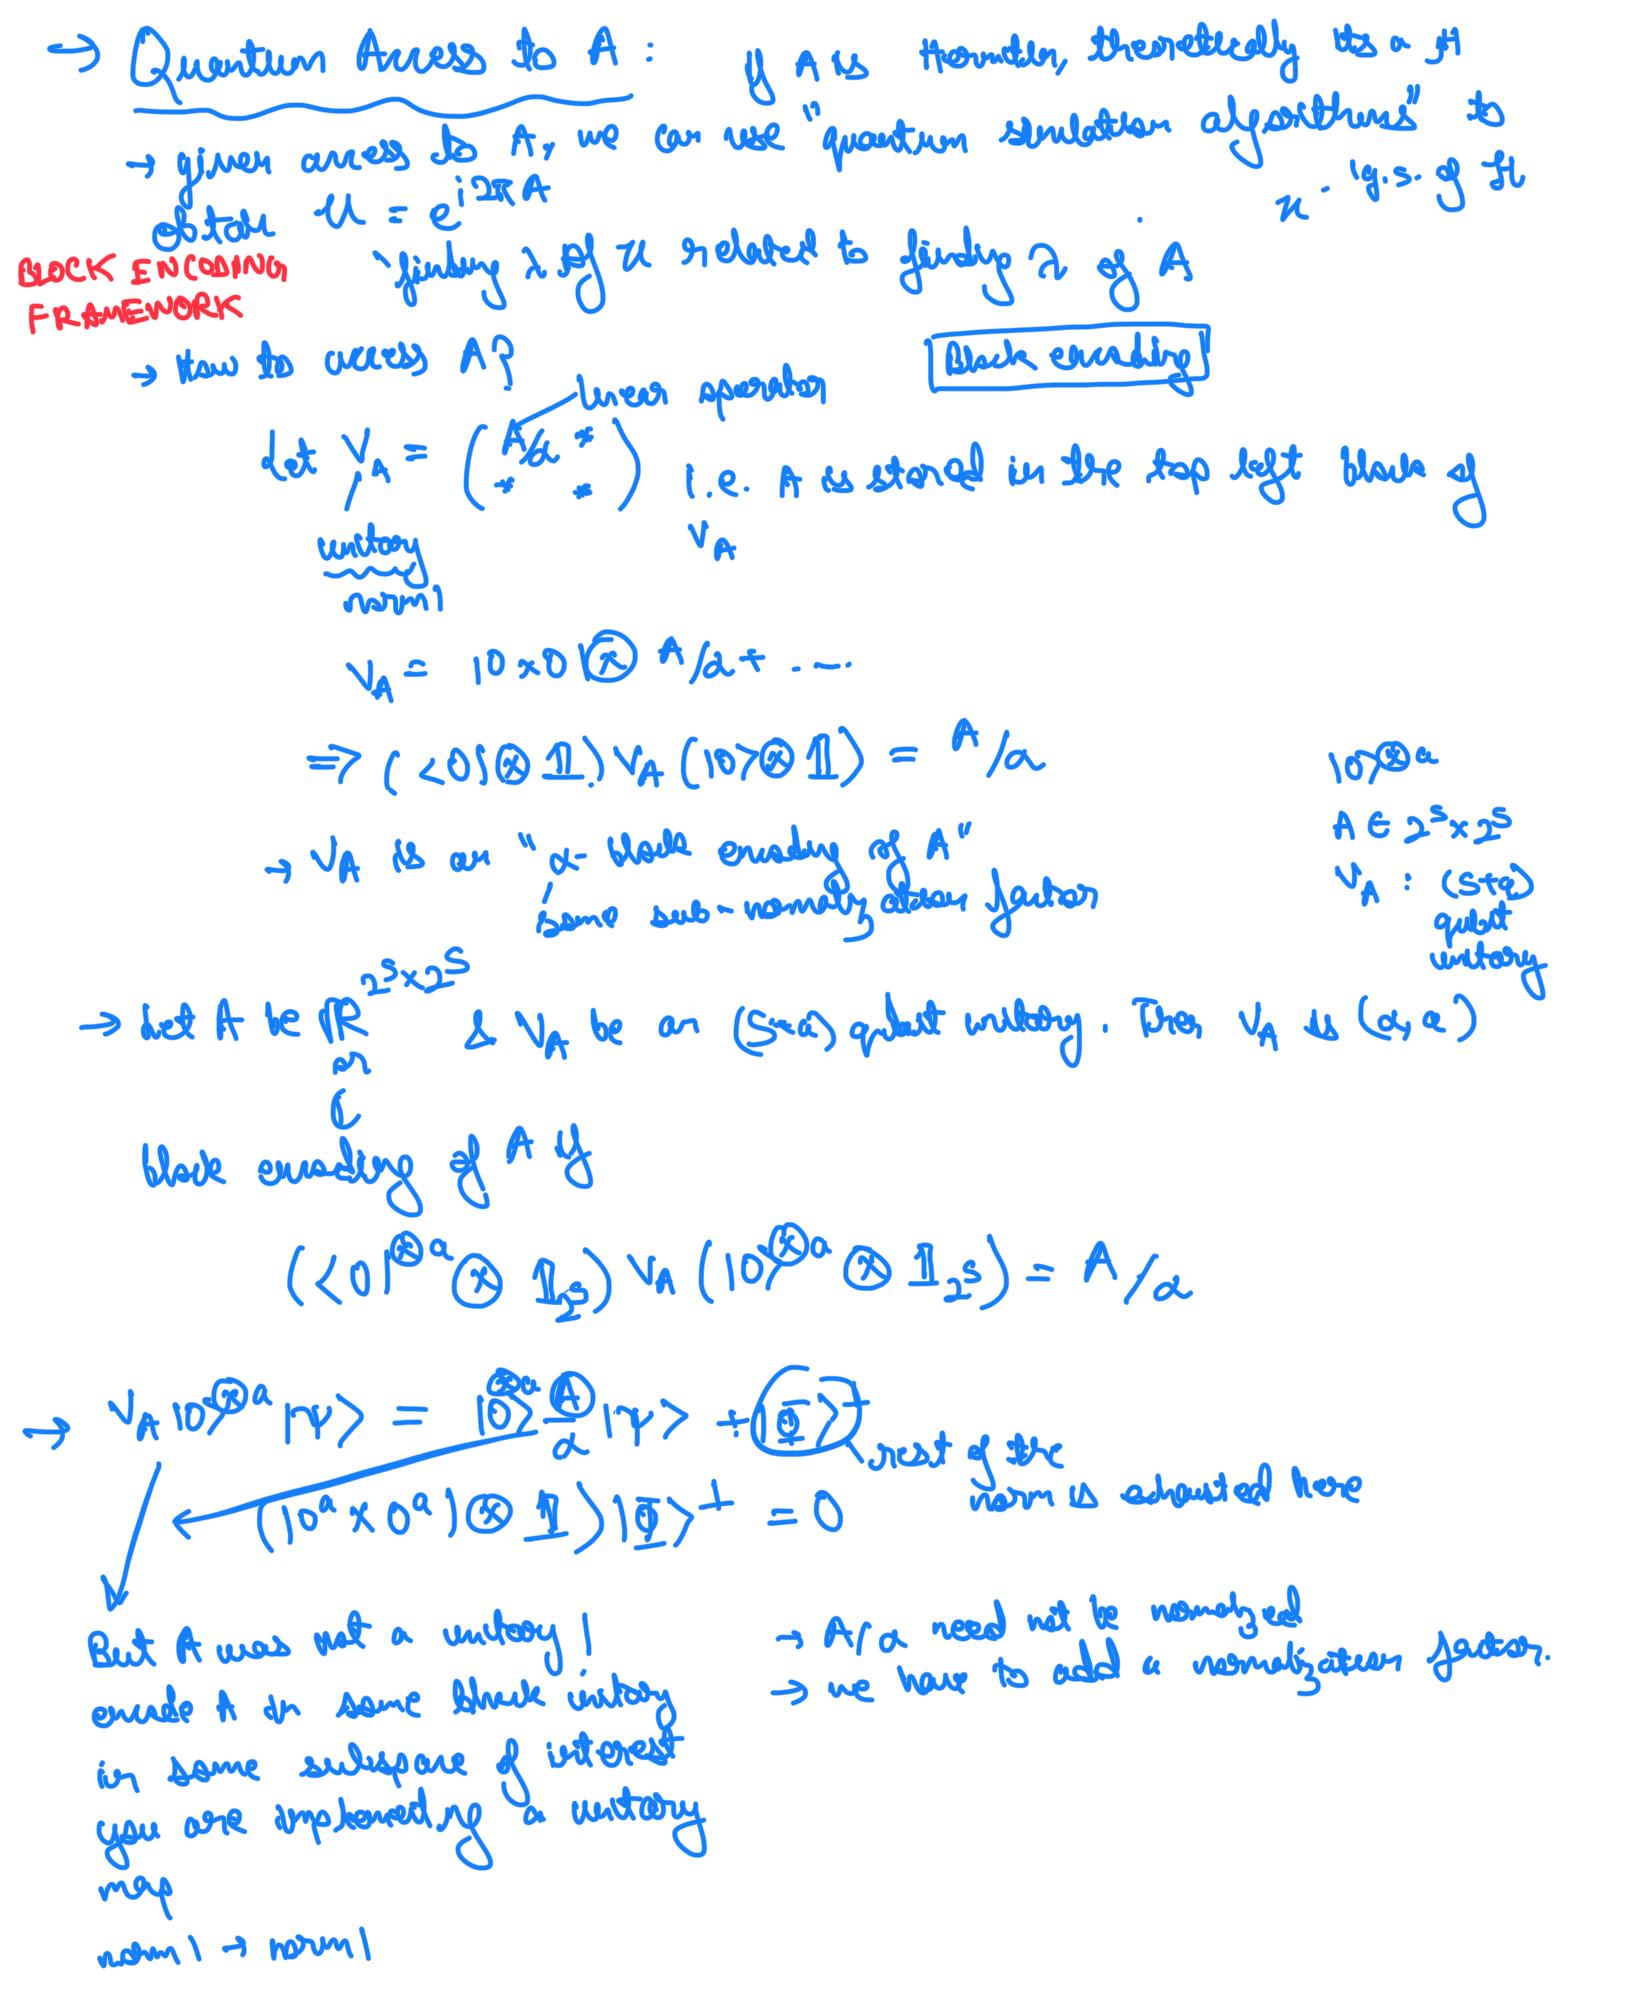 → Quantum Access to A : If A is Hermitian, theoretically its a H
→ given access to A, we can use "quantum simulation algorithms" to
obtain U = e^{i2πA} x · 'g.s. of H
BLOCK ENCODING FRAMEWORK
'finding λ of U related to finding λ of A
→ How to access A? Block encoding
linear operator
Let V_A = ( A/α * ; * * ) i.e. A is stored in the top left block of
V_A
unitary
norm 1
V_A = |0><0| ⊗ A/α + ....
⇒ (<0| ⊗ 𝟙) V_A (|0> ⊗ 𝟙) = A/α
|0>^{⊗a}
A ∈ 2^s × 2^s
V_A : (s+a)
qubit
unitary
→ V_A is an "α- block encoding of A"
some sub-normalization factor
→ Let A be ℝ^{2^s×2^s} & V_A be an (s+a) qubit unitary. Then V_A is (α, a)
or
ℂ
block encoding of A if
(<0|^{⊗a} ⊗ 𝟙_{2^s}) V_A (|0>^{⊗a} ⊗ 𝟙_{2^s}) = A/α
→ V_A |0>^{⊗a} |ψ> = |0>^{⊗a} A/α |ψ> + |Φ>^⊥
rest of the
norm is exhausted here
(|0^a><0^a| ⊗ 𝟙) |Φ>^⊥ = 0
But A was not a unitary !
encode A in some block unitary
in some subspace of interest
you are implementing a unitary
map
norm 1 → norm 1
→ A/α need not be normalized
→ we have to add a normalization factor.